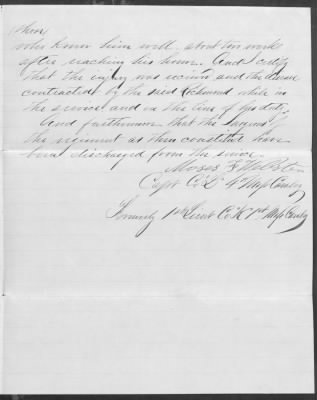 them
who knew him well, about two weeks
after reaching his home. And certify
that the injury was received and the disease
contracted by the said while in
the service and in the line of his duty.
And furthermore that the surgeons of
the regiment as then constituted have
been discharged from the service.
Moses F Webster
Capt Co "D" 4" Miss Cavalry
Formerly 1st Lieut Co "K" 1st Miss Cavalry